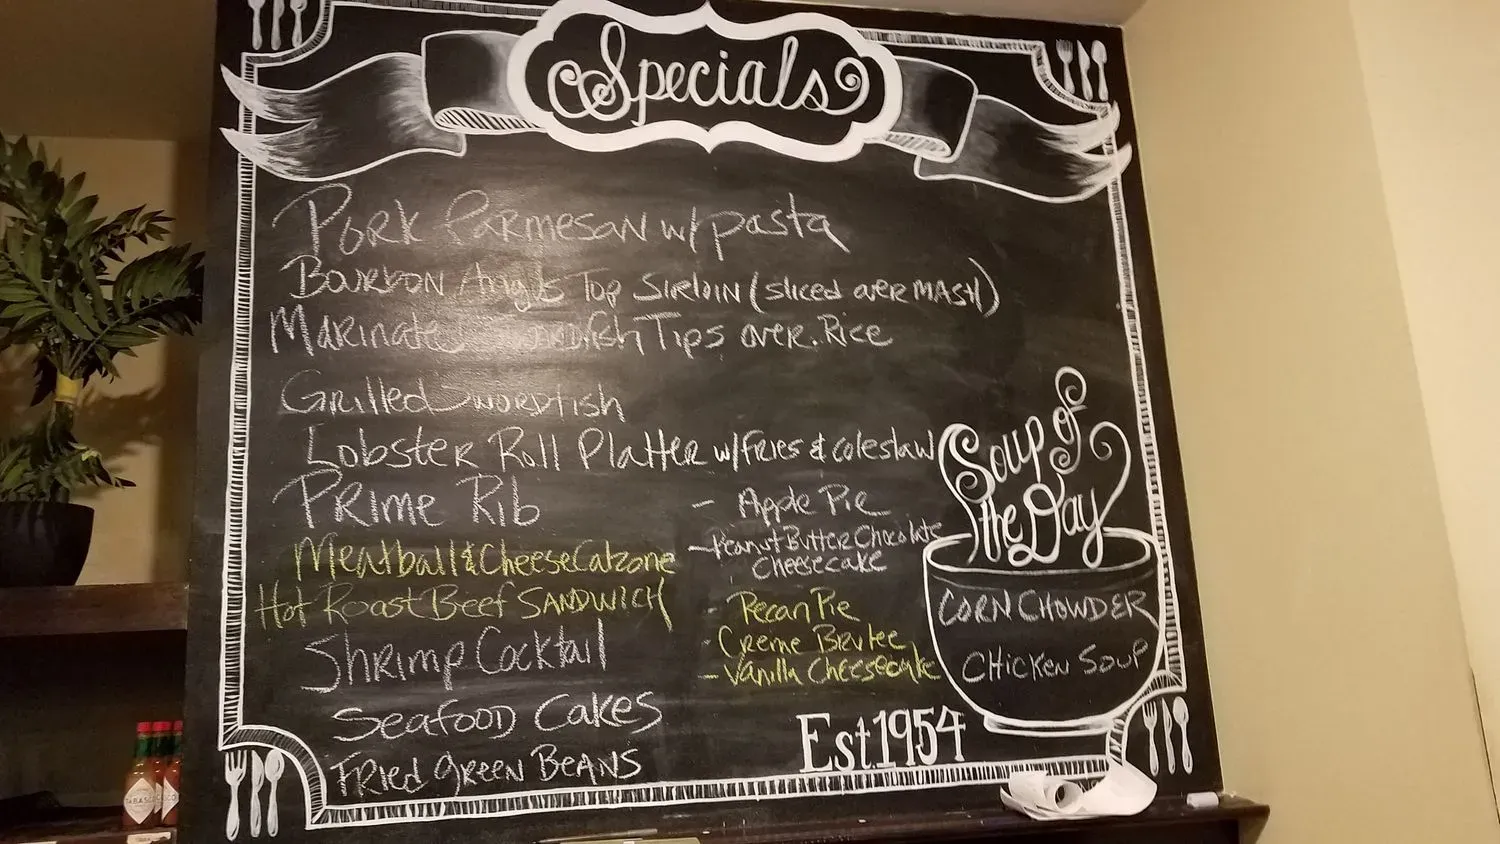 Specials
Pork Parmesan w/ pasta
Bourbon Angus Top Sirloin (sliced over MASH)
Marinated Swordfish Tips over Rice
Grilled Swordfish
Lobster Roll Platter w/ Fries & coleslaw
Prime Rib
Meatball & Cheese Calzone
Hot Roast Beef SANDWICH
Shrimp Cocktail
Seafood Cakes
Fried green Beans
- Apple Pie
- Peanut Butter Chocolate
Cheesecake
- Pecan Pie
- Creme Brulee
- Vanilla Cheesecake
Soup of
the Day
CORN CHOWDER
CHICKEN SOUP
Est 1954
TABASCO